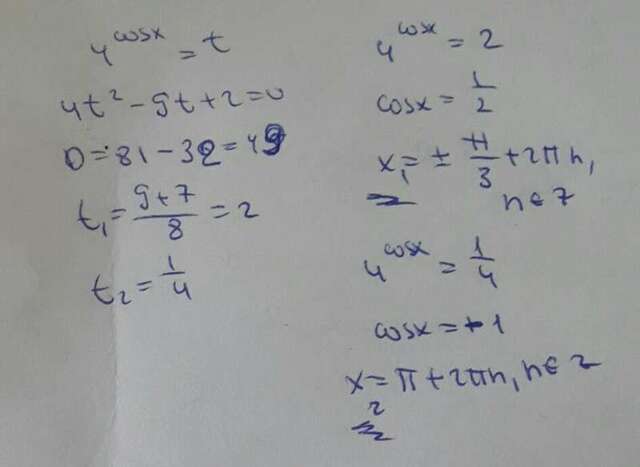 4^cosx = t
4t² - 9t + 2 = 0
D = 81 - 32 = 49
t₁ = (9+7)/8 = 2
t₂ = 1/4
4^cosx = 2
cosx = 1/2
x₁ = ± π/3 + 2πn,
n ∈ Z
4^cosx = 1/4
cosx = -1
x₂ = π + 2πn, n ∈ Z